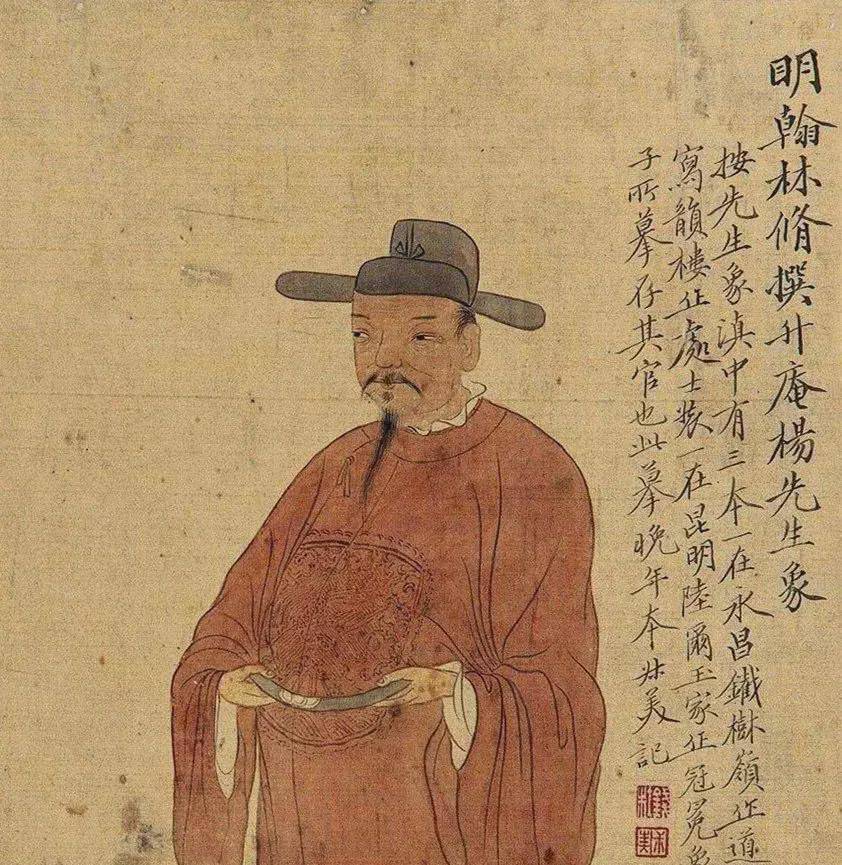 明翰林脩撰升庵楊先生象
按先生象滇中有三本一在永昌鐵樹嶺作道
寫韻樓作處士裝一在昆明陸爾玉家作冠冕象
子所摹存其官也此摹晚年本尗美記